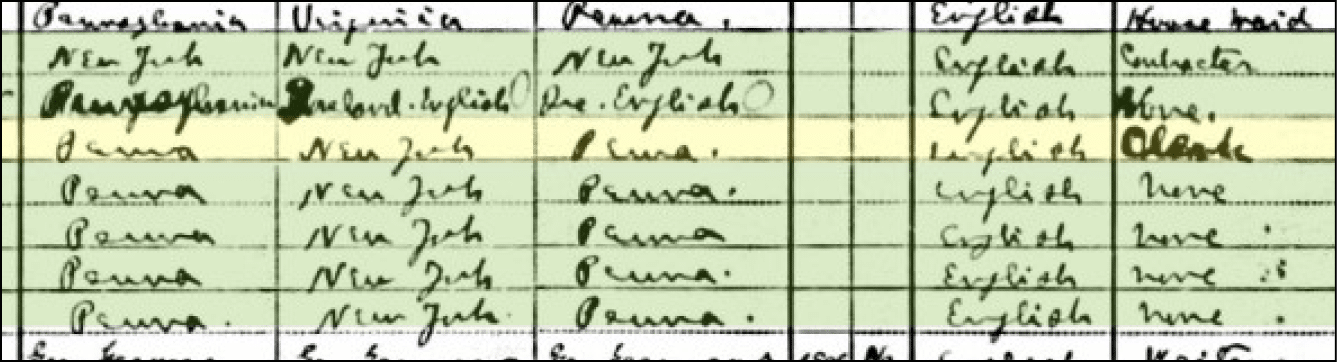 Pennsylvania Virginia Penna. English House maid
New York New York New York English Contractor
Pennsylvania Ireland-English Ire-English English None.
Penna New York Penna. English Clerk
Penna New York Penna. English None
Penna New York Penna English None
Penna New York Penna. English None
Penna. New York. Penna. English None